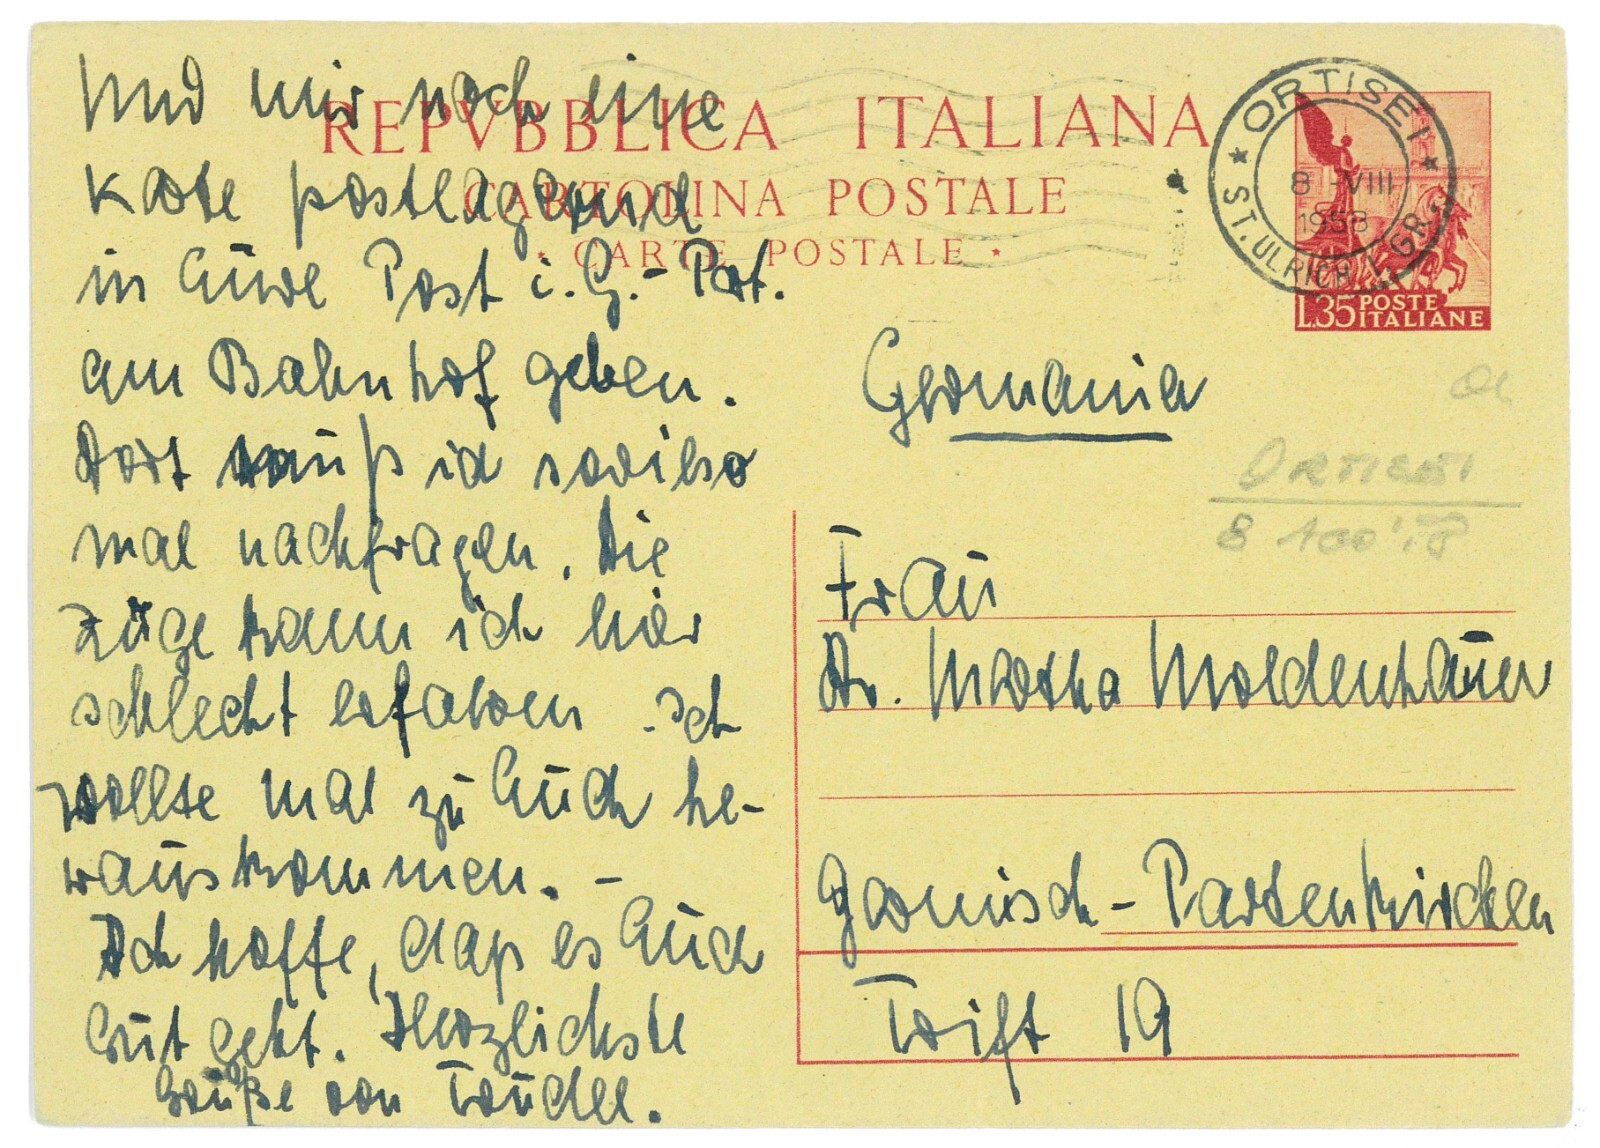 Und mir noch eine
Karte postlagernd
in Eure Post i. G.-Part.
am Bahnhof geben.
Dort muß ich sowieso
mal nachfragen. Die
Züge kann ich hier
schlecht erfahren. Ich
wollte mal zu Euch he-
rauskommen. –
Ich hoffe, daß es Euch
Gut geht. Herzlichste
Grüße von Trudel.
REPVBBLICA ITALIANA
CARTOLINA POSTALE
· CARTE POSTALE ·
* ORTISEI *
8 -VIII
1958
ST. ULRICH I. GR.
L.35 POSTE ITALIANE
Germania
ORTISEI
Frau
Dr. Martha Moldenhauer
Garmisch-Partenkirchen
Trift 19